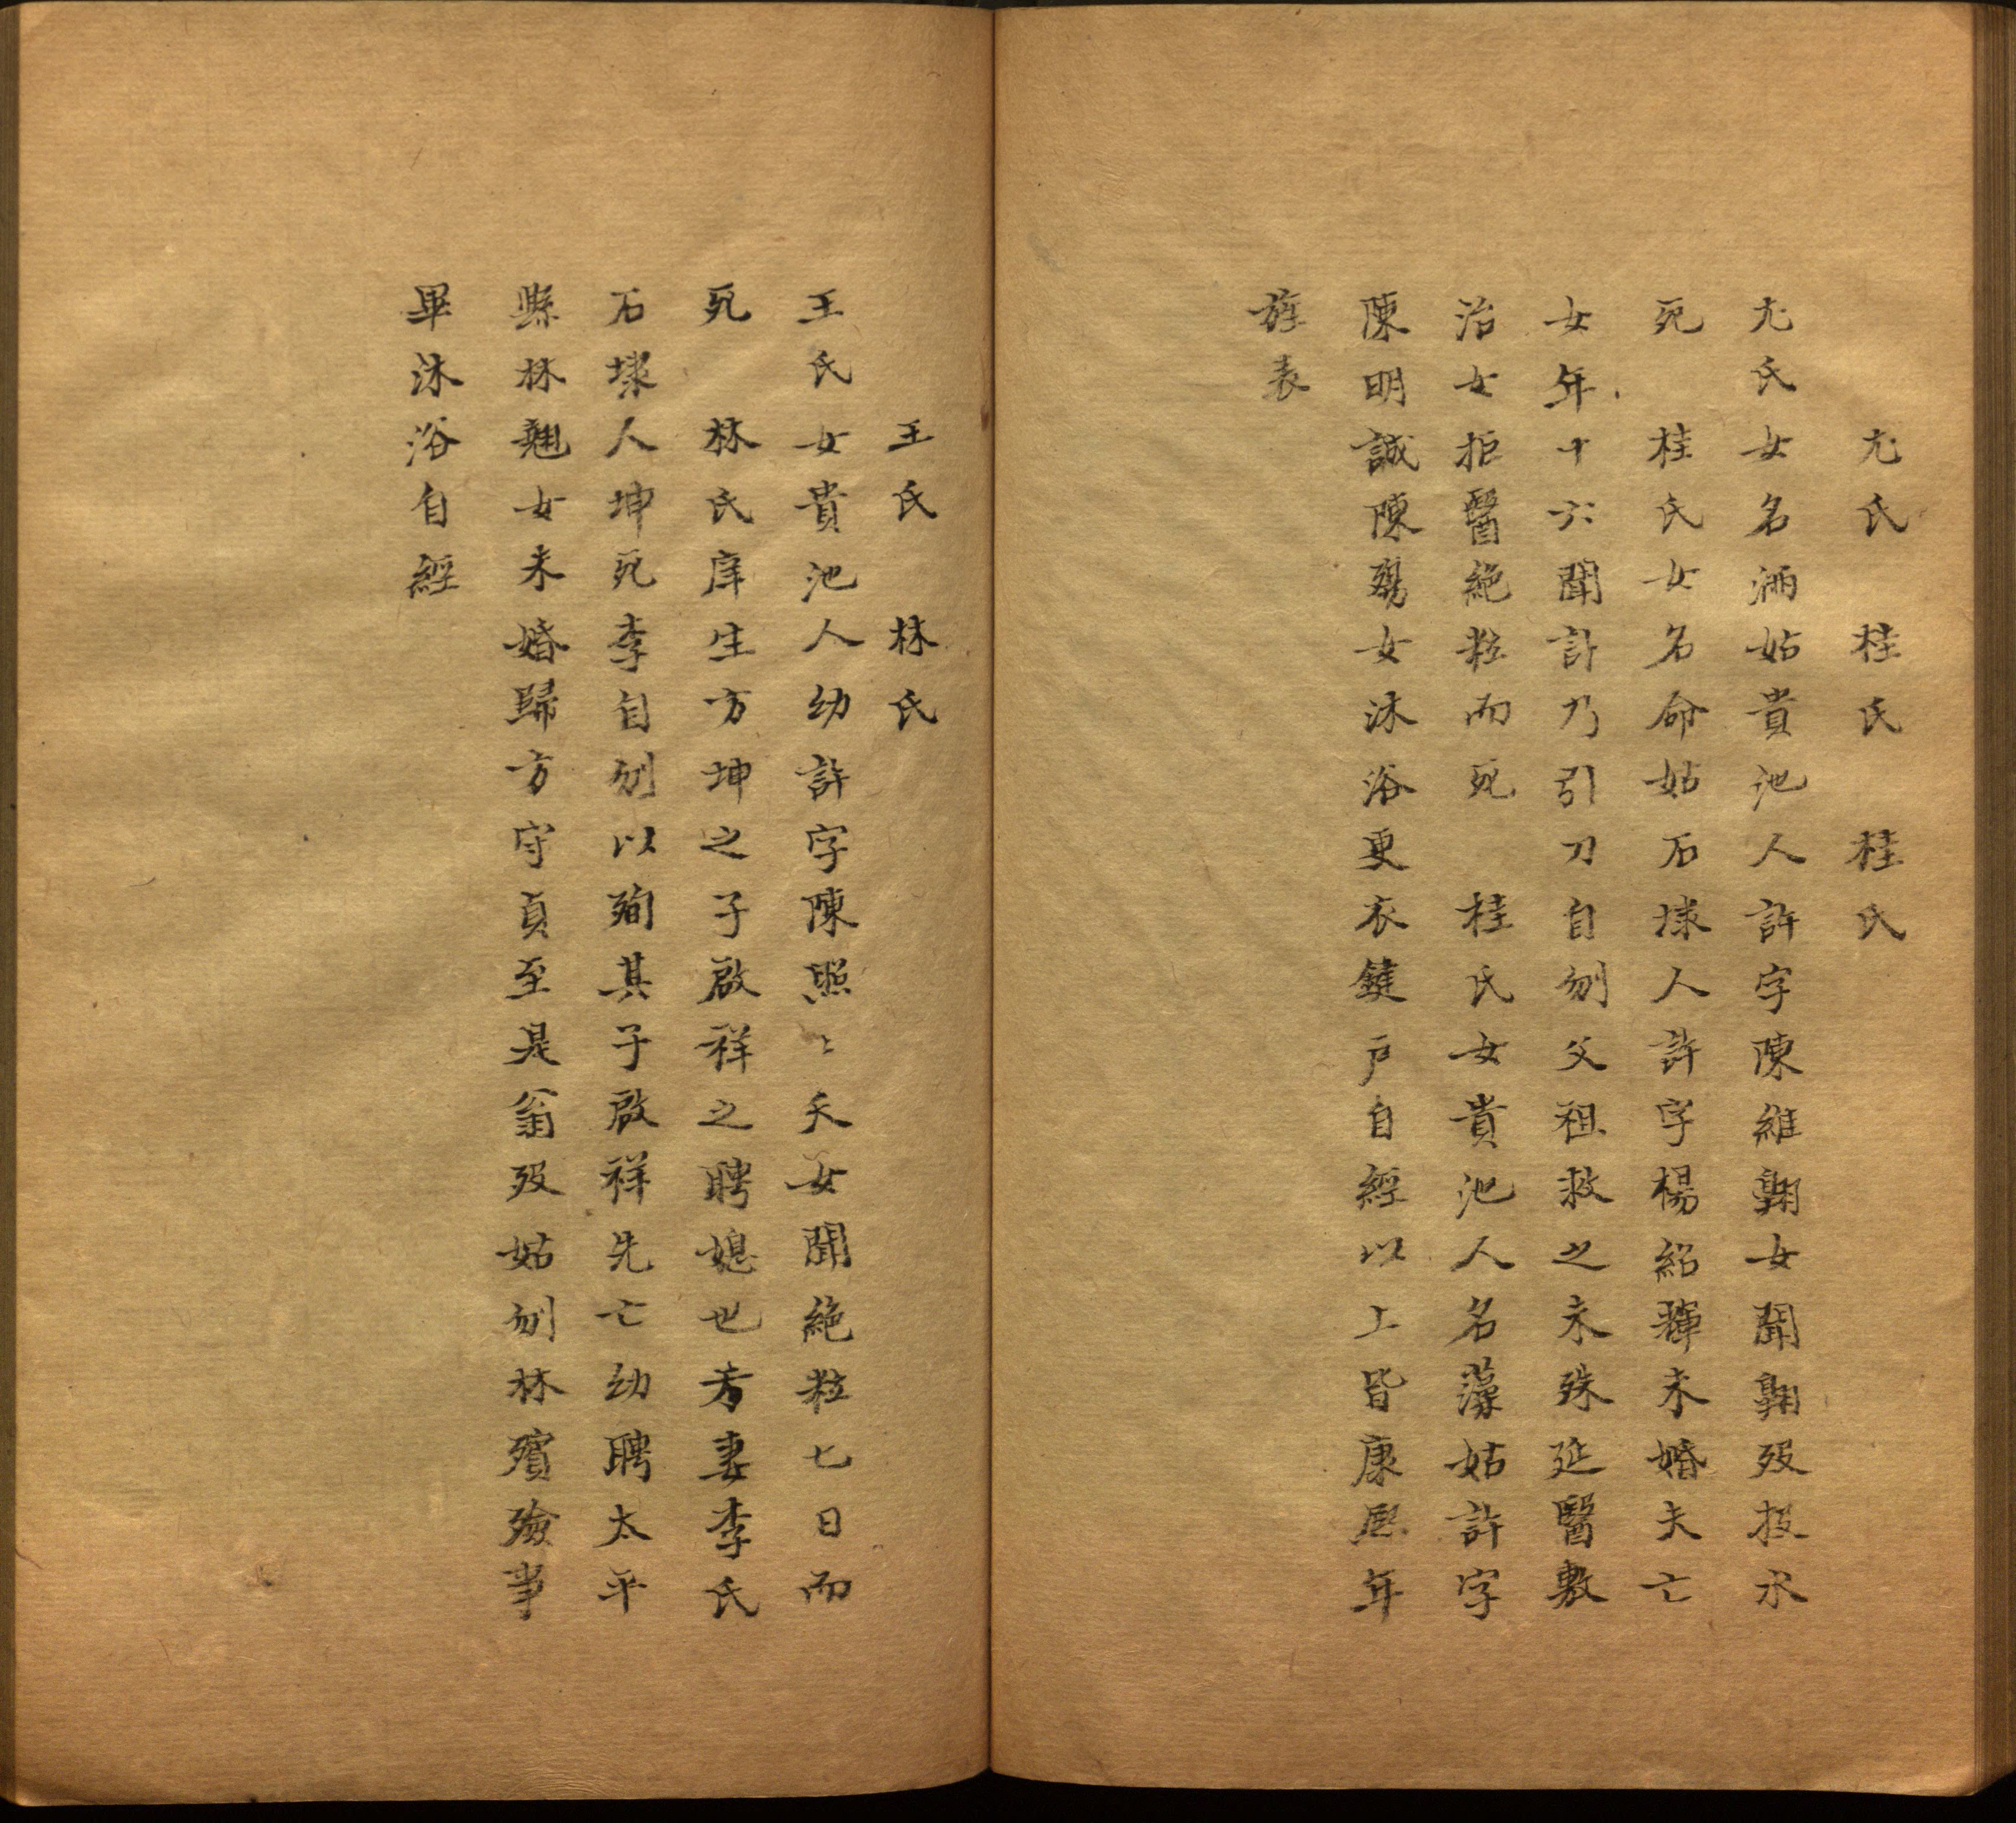 尤氏　桂氏　桂氏
尤氏女名洒姑貴池人許字陳維翱女聞翱歿投水
死　桂氏女名命姑石埭人許字楊紹輝未婚夫亡
女年十六聞訃乃引刀自刎父祖救之未殊延醫敷
治女拒醫絶粒而死　桂氏女貴池人名藻姑許字
陳明誠陳殤女沐浴更衣鍵戸自經以上皆康熙年
旌表
王氏　林氏
王氏女貴池人幼許字陳照〻夭女聞絶粒七日而
死　林氏庠生方坤之子啟祥之聘媳也考妻李氏
石埭人坤死李自刎以殉其子啟祥先亡幼聘太平
縣林翹女未婚歸方守貞至是翁歿姑刎林殯殮事
畢沐浴自經